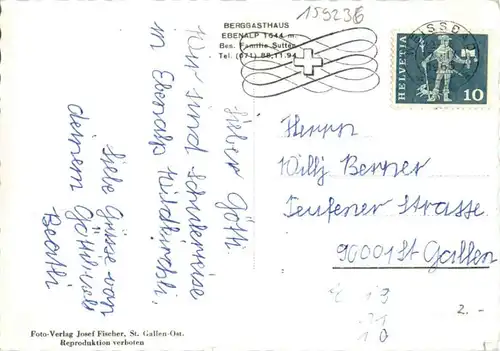 BERGGASTHAUS
EBENALP 1644 m.
Bes. Familie Sutter
Tel. (071) 88.11.94
159236
HELVETIA
10
Lieber Götti.
Wir sind Schulreise
in Ebenalp Wildkirchli.
Liebe Grüsse von
deinem Göttikind
Beatli
Herrn
Willy Berner
Teufener Strasse
90001 St Gallen
2.-
Foto-Verlag Josef Fischer, St. Gallen-Ost.
Reproduktion verboten